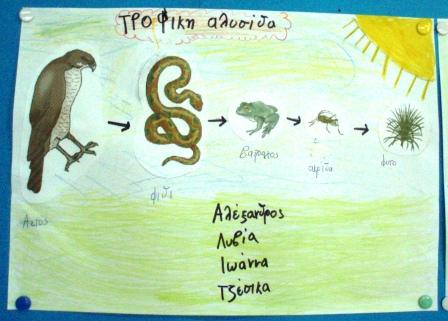 ΤΡΟφικη αλυσίδα
Αετος
φιδι
βατραχος
ακρίδα
φυτο
Αλέξανδρος
Λυδία
Ιωάννα
Τζέσικα